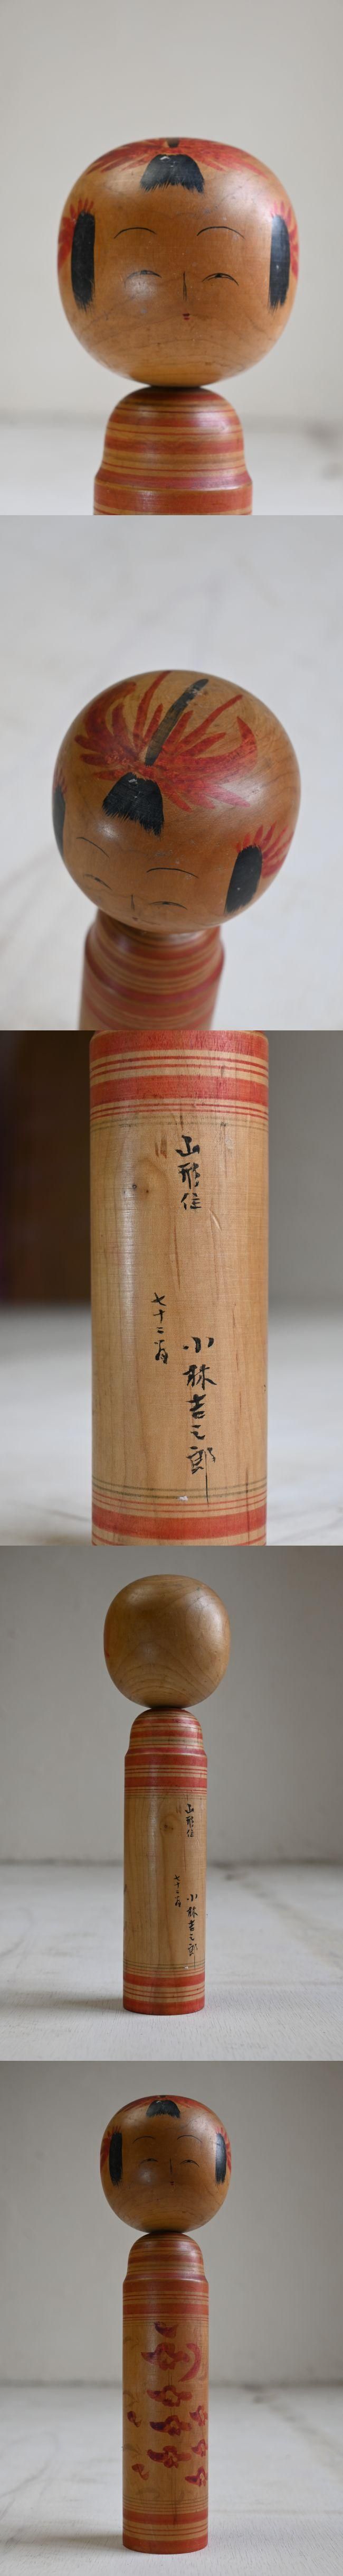 山形住
小林吉之郎
七十二才
山形住
小林吉之郎
七十二才